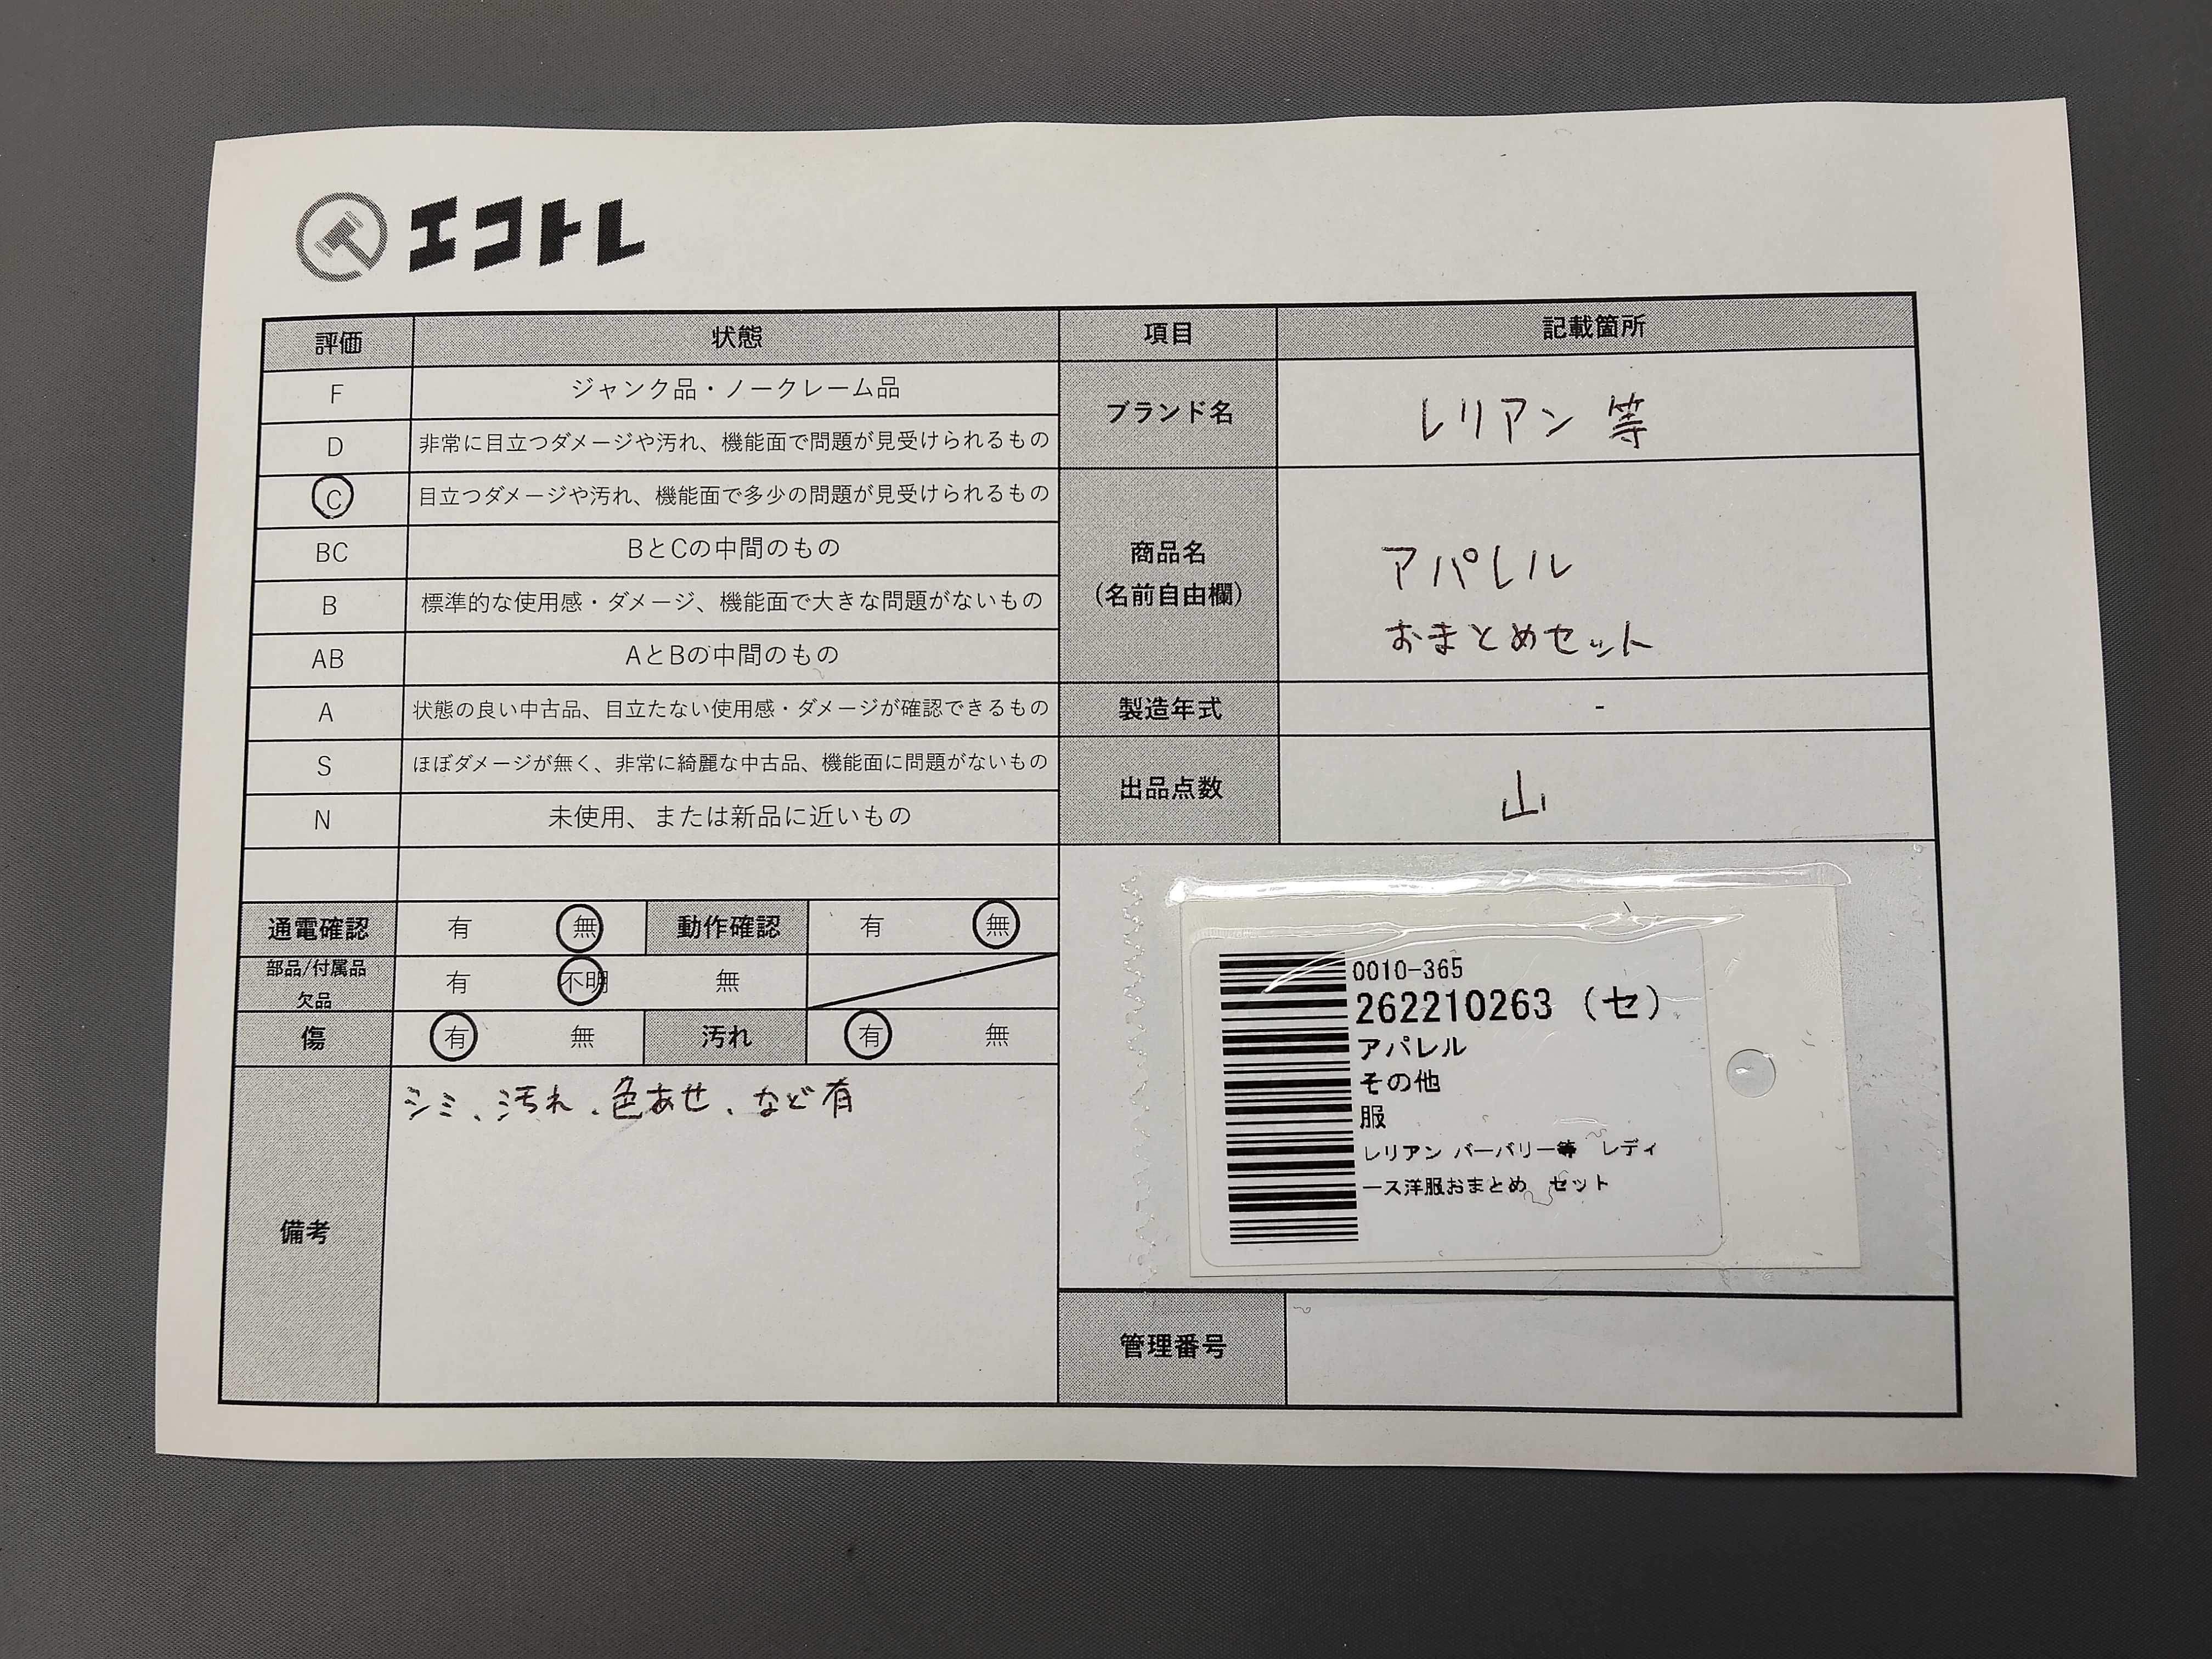 エコトレ
評価 状態 項目 記載箇所
F ジャンク品・ノークレーム品
D 非常に目立つダメージや汚れ、機能面で問題が見受けられるもの
C 目立つダメージや汚れ、機能面で多少の問題が見受けられるもの
BC BとCの中間のもの
B 標準的な使用感・ダメージ、機能面で大きな問題がないもの
AB AとBの中間のもの
A 状態の良い中古品、目立たない使用感・ダメージが確認できるもの
S ほぼダメージが無く、非常に綺麗な中古品、機能面に問題がないもの
N 未使用、または新品に近いもの
ブランド名 レリアン 等
商品名
(名前自由欄)
アパレル
おまとめセット
製造年式 -
出品点数 山
通電確認 有 無 動作確認 有 無
部品/付属品
欠品
有 不明 無
傷 有 無 汚れ 有 無
備考
シミ、汚れ、色あせ、など有
0010-365
262210263 (セ)
アパレル
その他
服
レリアン バーバリー等 レディ
ース洋服おまとめ セット
管理番号